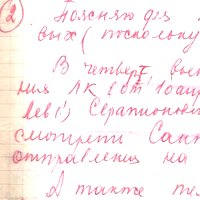 2
Поясняю для
вых ( поскольку
В четверг, выс
ния ЛК ( от 10 апр
Лев!) Серапионов
смотрели Санк
отправления на
А также тел